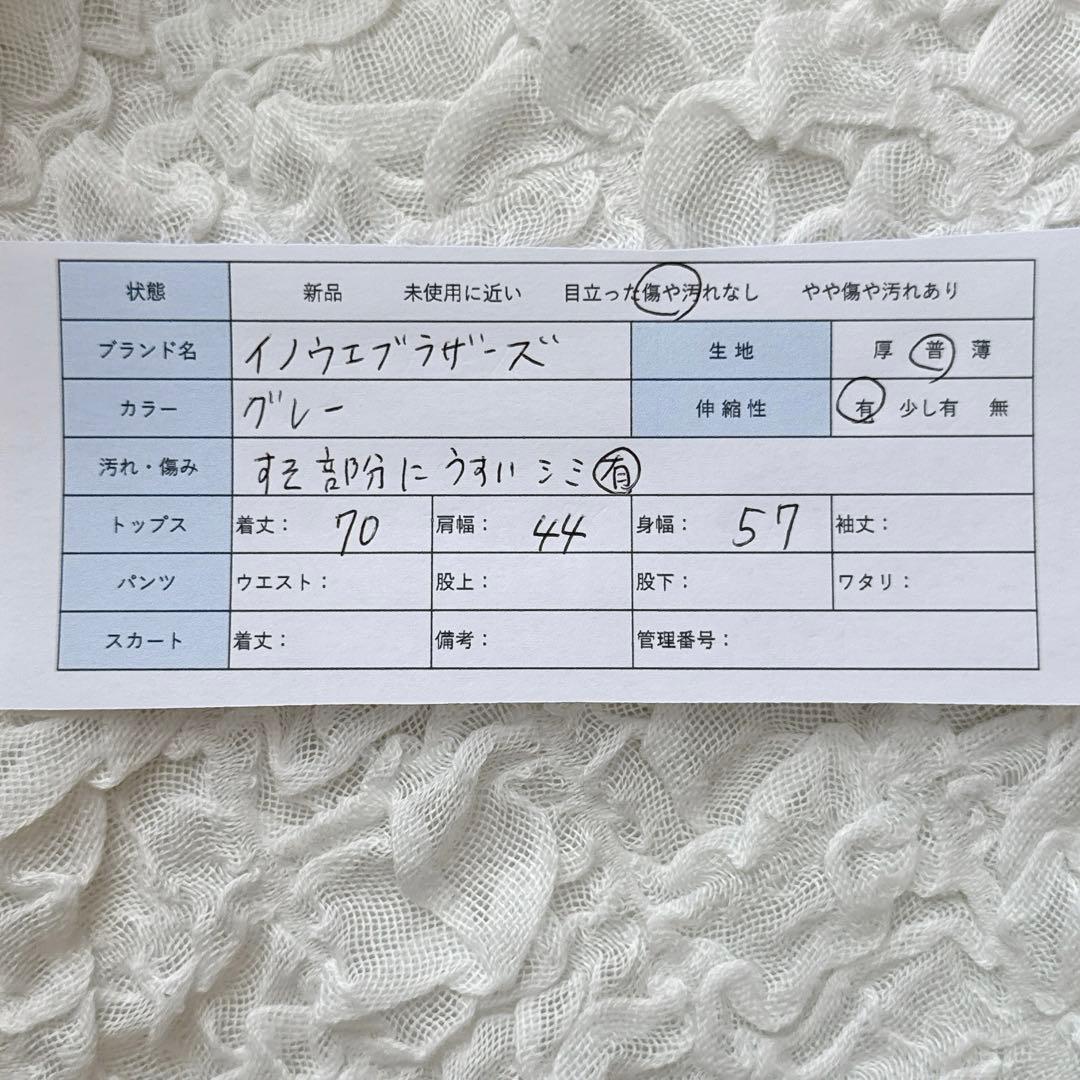 状態 新品 未使用に近い 目立った傷や汚れなし やや傷や汚れあり
ブランド名 イノウエブラザーズ 生地 厚 普 薄
カラー グレー 伸縮性 有 少し有 無
汚れ・傷み すそ部分にうすいシミ有
トップス 着丈： 70 肩幅： 44 身幅： 57 袖丈：
パンツ ウエスト： 股上： 股下： ワタリ：
スカート 着丈： 備考： 管理番号：